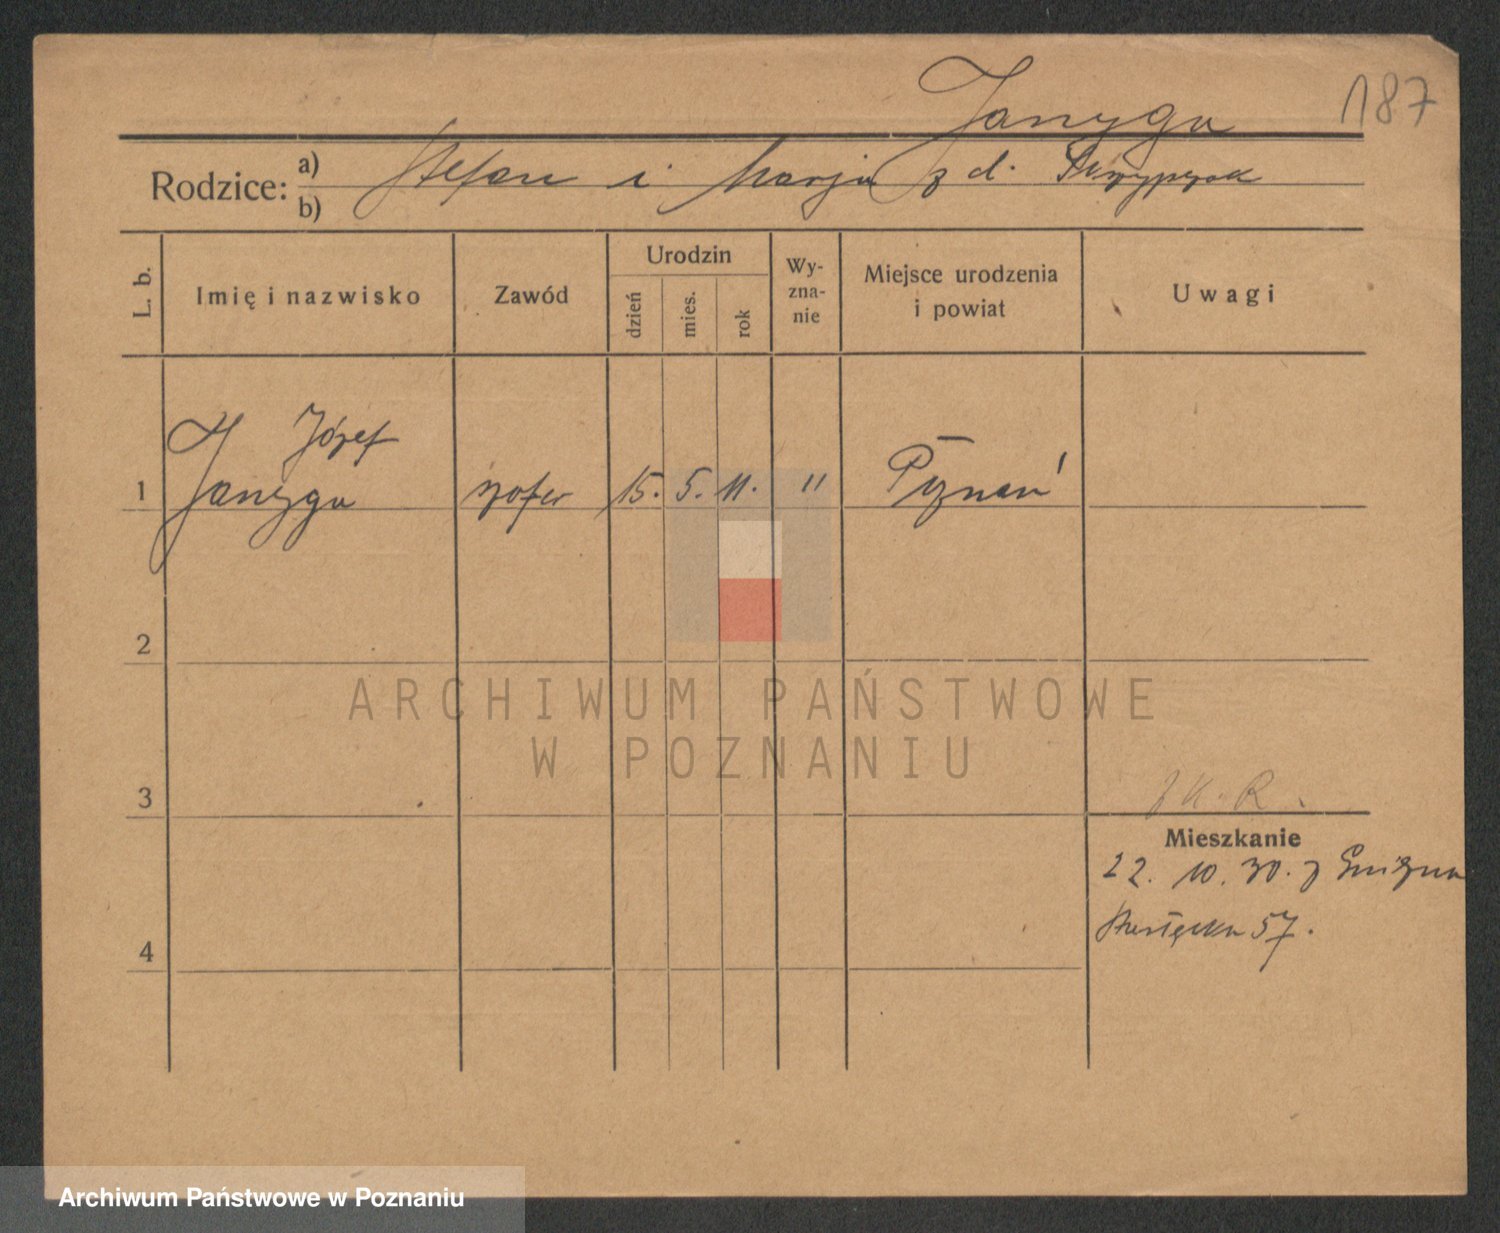 Janyga 187
Rodzice: a) b) Stefan i Marja z d. Skrzypczak
L. b. Imię i nazwisko Zawód Urodzin dzień mies. rok Wy-zna-nie Miejsce urodzenia i powiat Uwagi
Józef
1 Janyga szofer 15. 5. 11. " Poznań
2
ARCHIWUM PAŃSTWOWE
W POZNANIU
3
Mieszkanie
22. 10. 30. z
57.
4
Archiwum Państwowe w Poznaniu